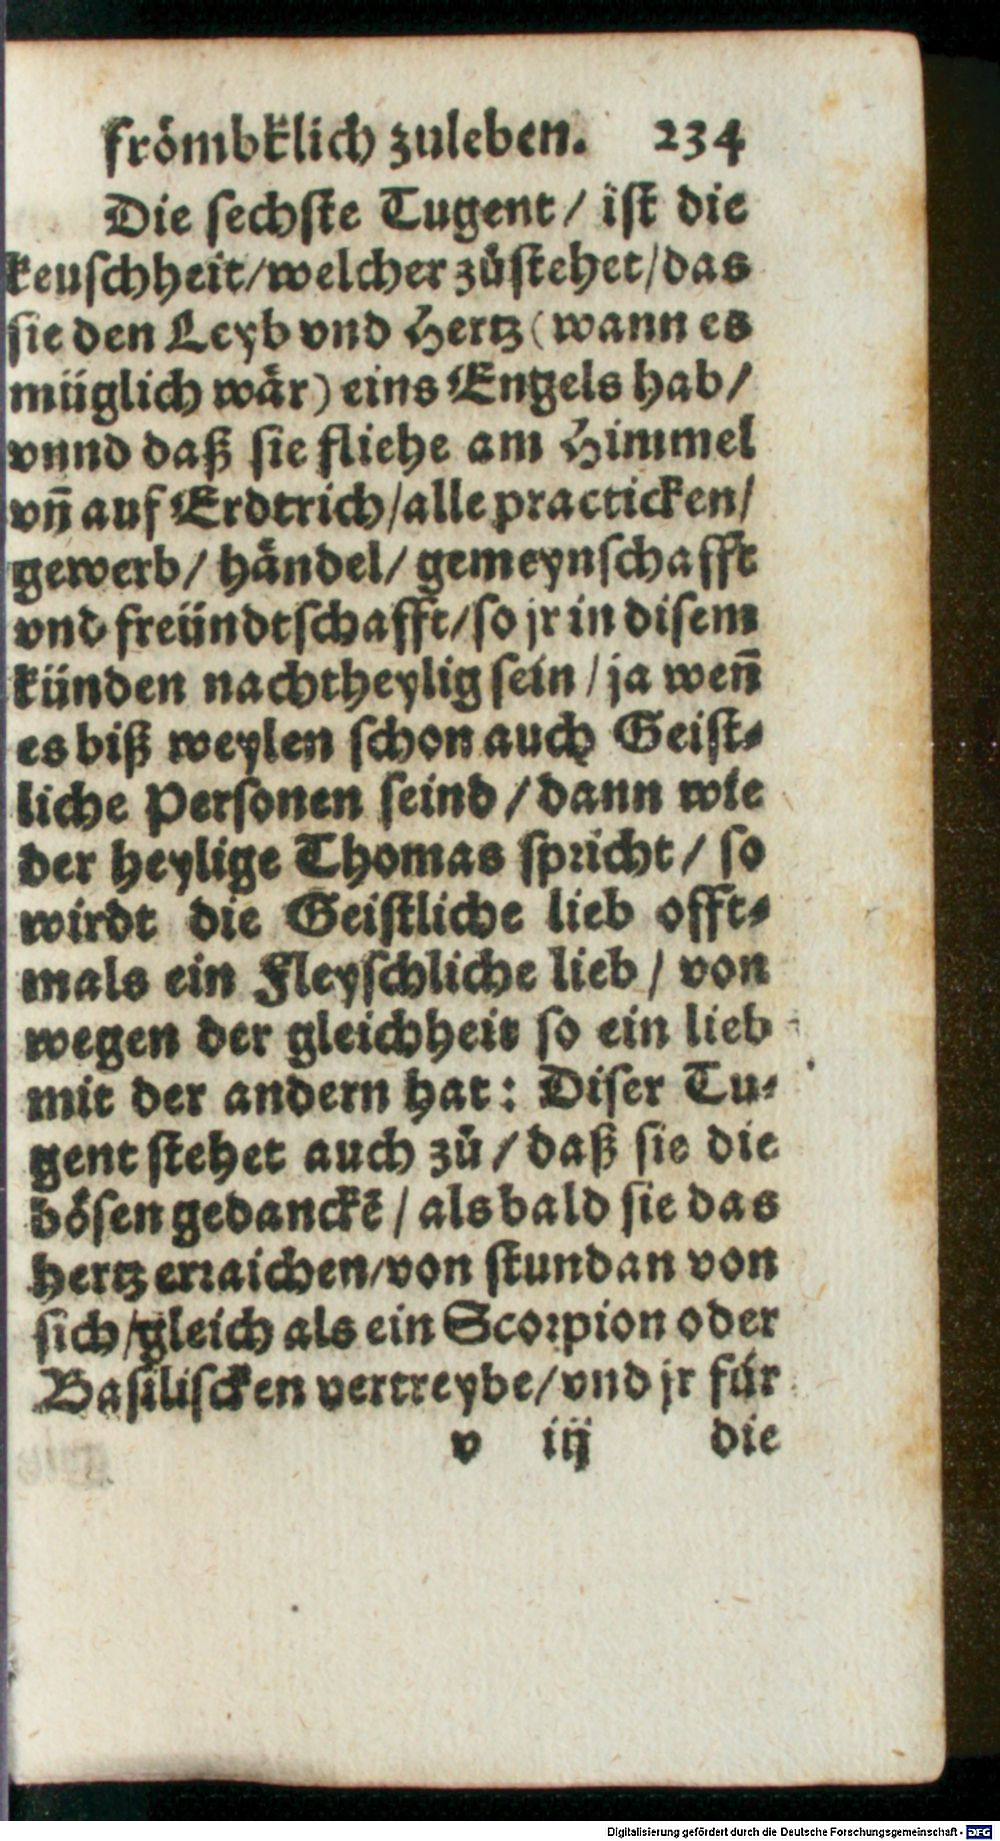 frömbklich zuleben. 234
Die sechste Tugent / ist die
keuschheit/welcher zůstehet/das
sie den Leyb vnd Hertz (wann es
müglich wär) eins Engels hab/
vnnd daß sie fliehe am Himmel
vn̄ auf Erdtrich/alle practicken/
gewerb/ händel/ gemeynschafft
vnd freündtschafft/so jr in disem
künden nachtheylig sein / ja wen̄
es biß weylen schon auch Geist-
liche Personen seind / dann wie
der heylige Thomas spricht / so
wirdt die Geistliche lieb offt-
mals ein Fleyschliche lieb / von
wegen der gleichheit so ein lieb
mit der andern hat: Diser Tu-
gent stehet auch zů / daß sie die
bösen gedanckē / als bald sie das
hertz erraichen/von stundan von
sich/gleich als ein Scorpion oder
Basiliscken vertreybe/vnd jr für
v iij die
Digitalisierung gefördert durch die Deutsche Forschungsgemeinschaft - DFG